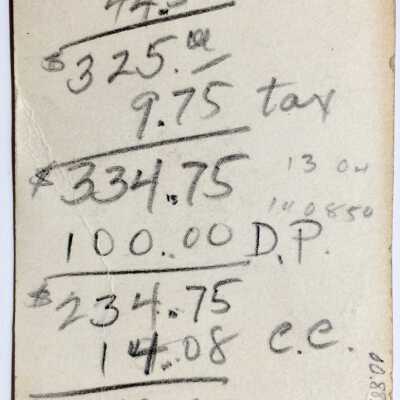 $325.00
9.75 tax
$334.75
13
100.00 D.P.
$234.75
14.08 C.C.